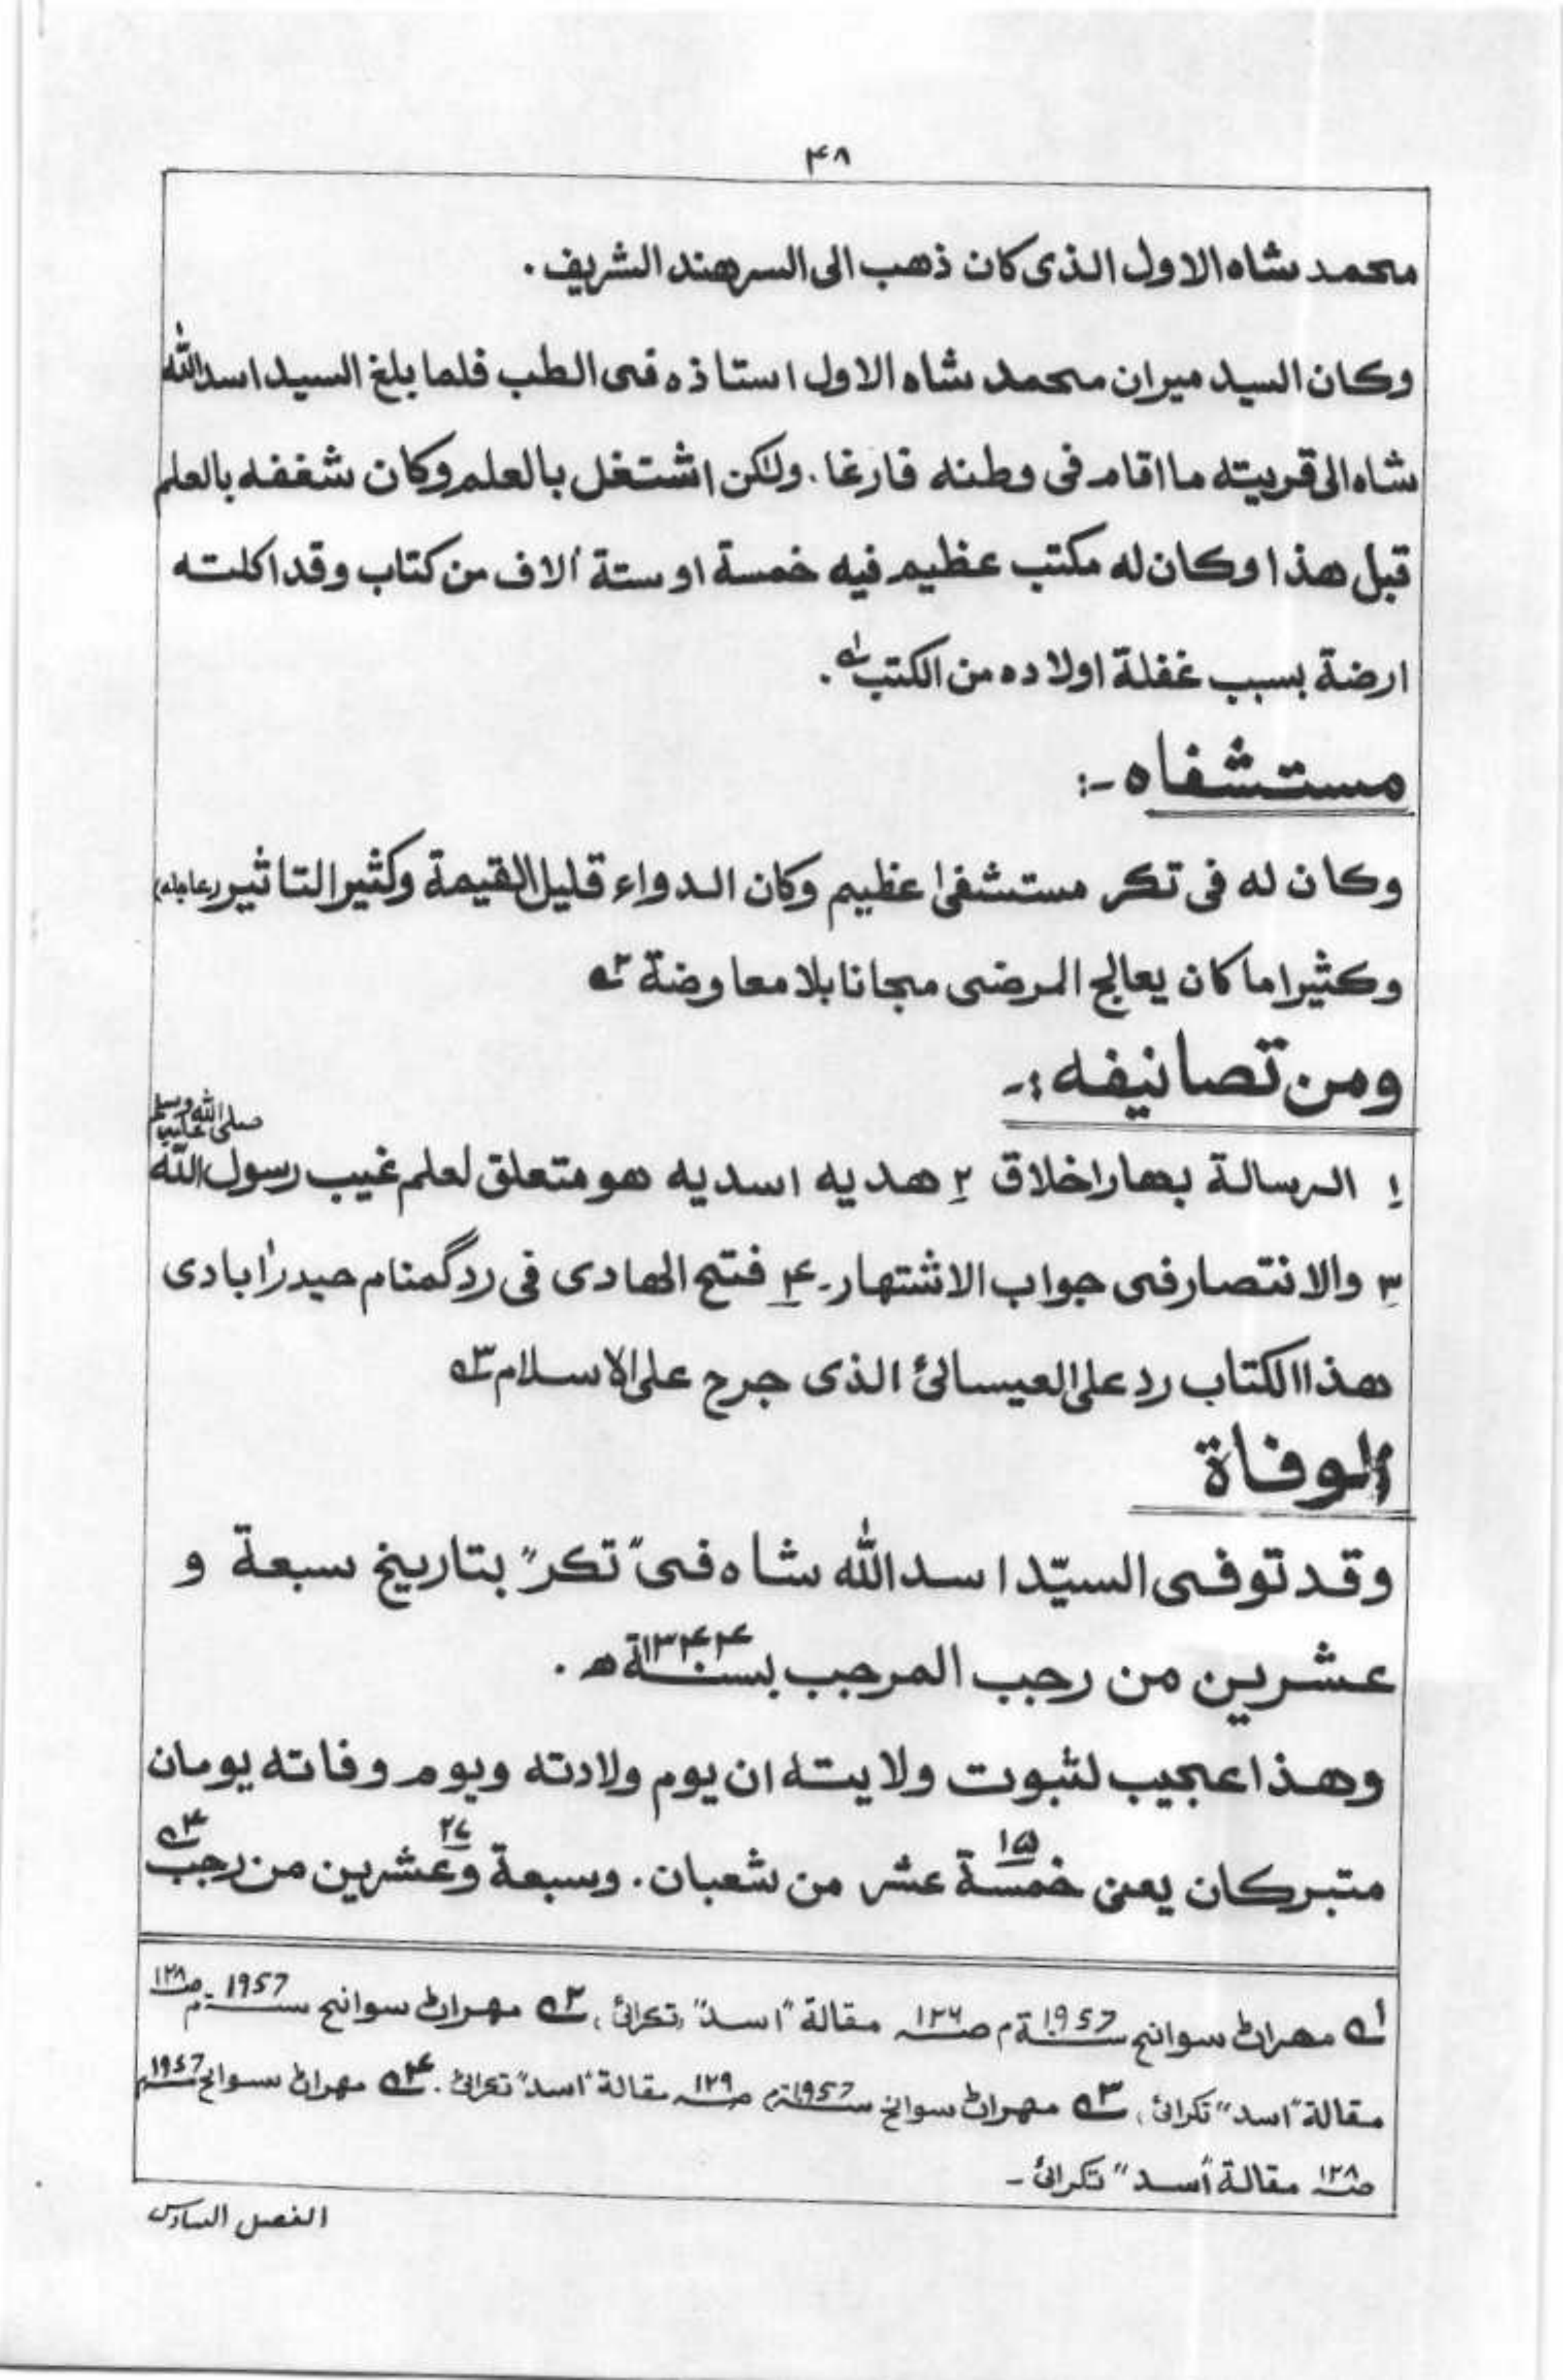 ۴۸
محمد شاه الاول الذی کان ذهب الی السرهند الشریف .
وکان السید میران محمد شاه الاول استاذه فی الطب فلما بلغ السید اسدالله
شاه الی قریته ما اقام فی وطنه فارغا . ولکن اشتغل بالعلم وکان شغفه بالعلم
قبل هذا وکان له مکتب عظیم فیه خمسة او ستة ألاف من کتاب وقد اکلته
ارضة بسبب غفلة اولاده من الکتب ۱ .
مستشفاه :-
وکان له فی تکر مستشفیٰ عظیم وکان الدواء قلیل القیمة وکثیر التاثیر (عاجله)
وکثیرا ما کان یعالج المرضی مجانا بلا معاوضة ۲
ومن تصانیفه :-
۱ الرسالة بهار اخلاق ۲ هدیه اسدیه هو متعلق لعلم غیب رسول الله صلی الله علیه وسلم
۳ والانتصار فی جواب الاشتهار ـ ۴ فتح الهادی فی رد گمنام حیدرآبادی
هذا الکتاب رد علی العیسائی الذی جرح علی الاسلام ۳
الوفاة
وقد توفی السیّد اسدالله شاه فی "تکر" بتاریخ سبعة و
عشرین من رجب المرجب بسنة ۱۳۴۴ ه .
وهذا عجیب لثبوت ولایته ان یوم ولادته ویوم وفاته یومان
متبرکان یعنی خمسة عشر ۱۵ من شعبان . وسبعة وعشرین ۲۷ من رجب ۴
۱ مهراڻ سوانح سنة 1957 م صـ ۱۲۶ مقالة "اسد" تکرائی ، ۲ مهراڻ سوانح سنة 1957 م صـ ۱۲۸
مقالة "اسد" تکرائی ، ۳ مهراڻ سوانح سنة 1957 م صـ ۱۲۹ مقالة "اسد" تکرائی . ۴ مهراڻ سوانح سنة 1957 م
صـ ۱۲۸ مقالة "اسد" تکرائی ـ
الفصل السادس